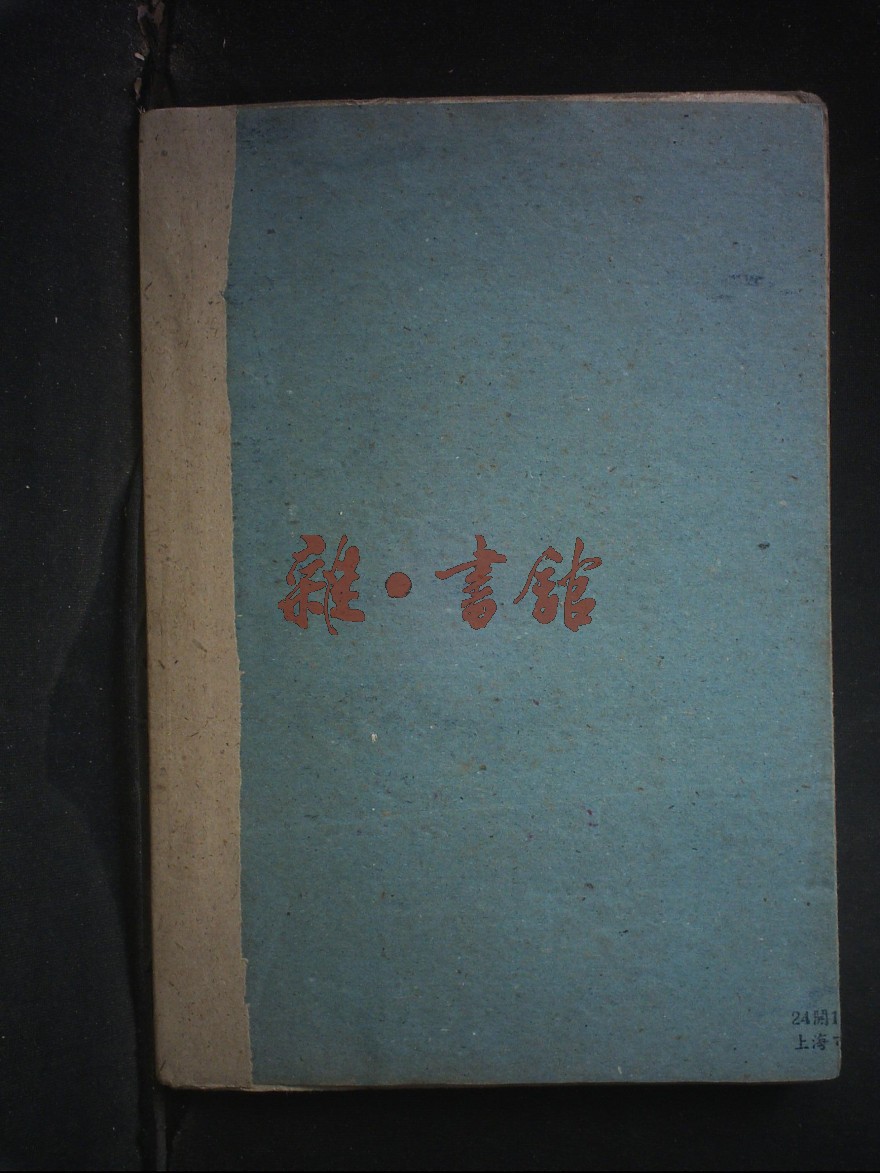 雜·書館
24開1
上海市